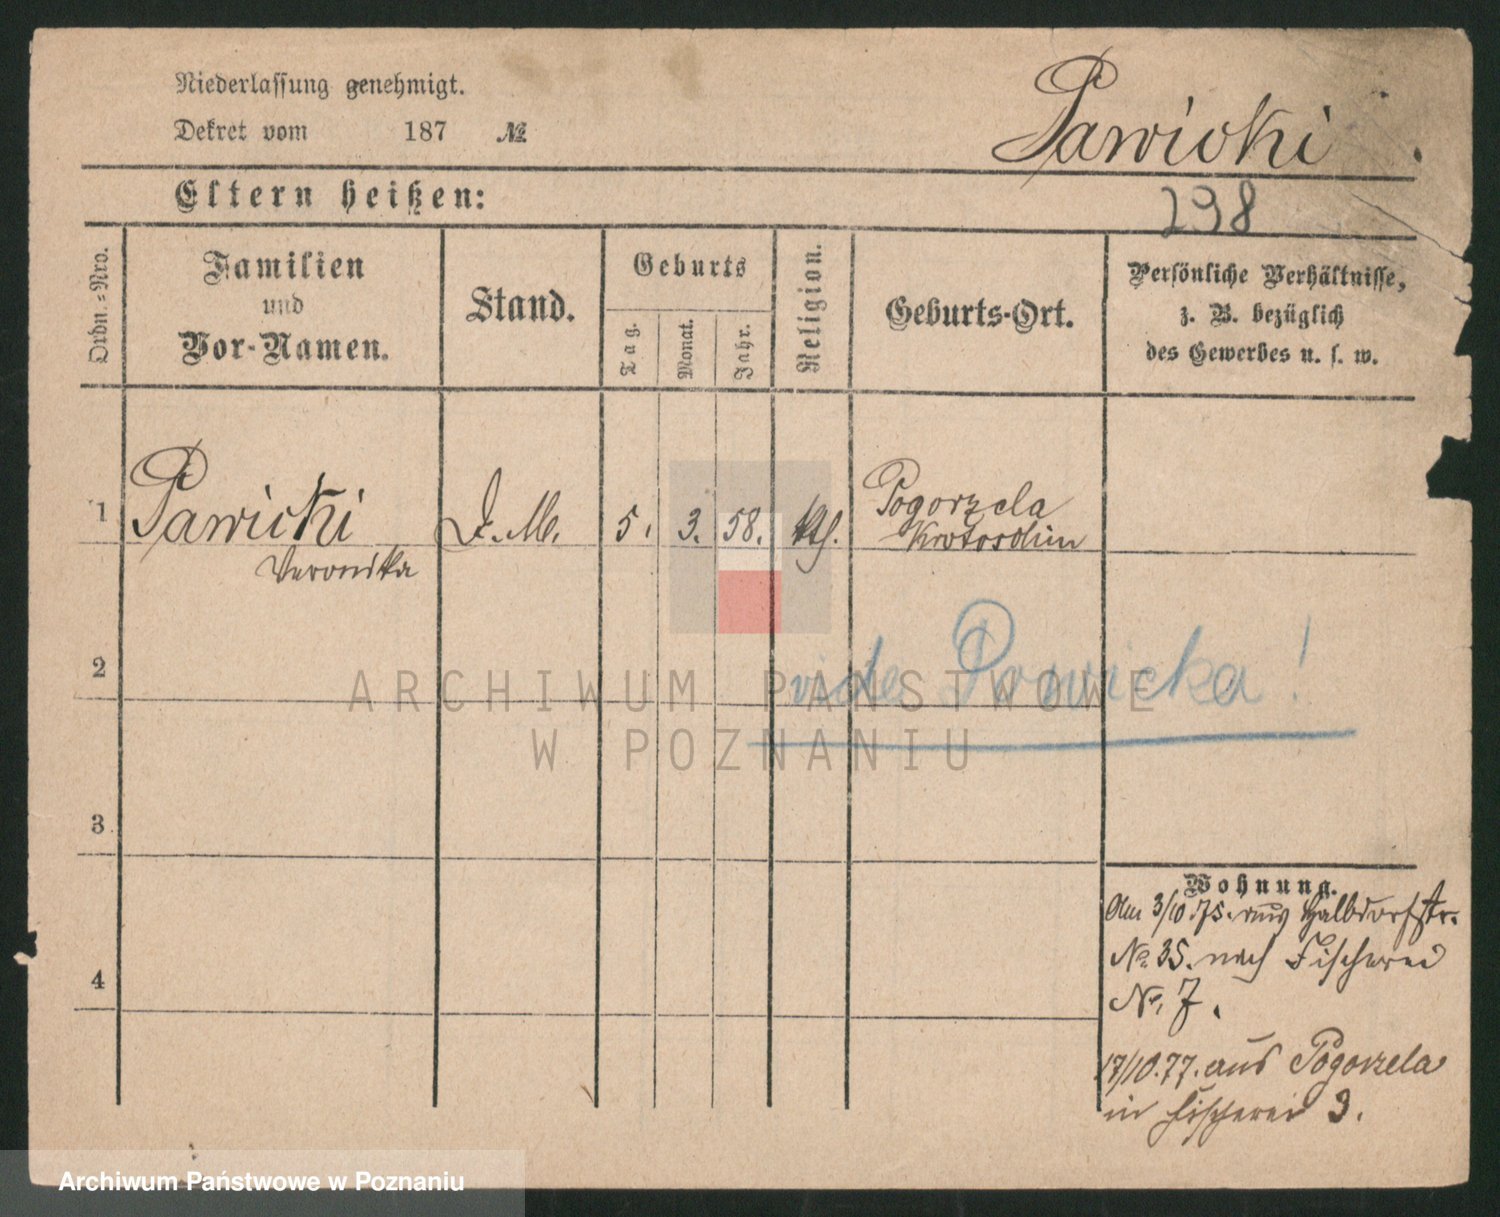 Niederlassung genehmigt.
Dekret vom 187 №
Pawicki.
Eltern heißen:
298
Ordn.-Nro.
Familien
und
Vor-Namen.
Stand.
Geburts
Tag.
Monat.
Jahr.
Religion.
Geburts-Ort.
Persönliche Verhältnisse,
z. B. bezüglich
des Gewerbes u. s. w.
1 Pawicki D. M. 5. 3. 58. kth. Pogorzela
Veronika Krotoschin
2
vide Pawicka!
ARCHIWUM PAŃSTWOWE
W POZNANIU
3
4
Wohnung.
Am 3/10.75. aus Halbdorfstr.
No. 35. nach Fischerei
No. 7.
17/10.77. aus Pogorzela
in Fischerei 3.
Archiwum Państwowe w Poznaniu